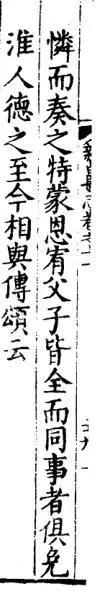 憐而奏之特蒙恩宥父子皆全而同事者俱免
淮人德之至今相與傳頌云